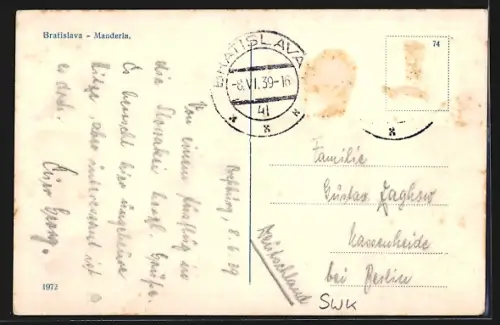 Bratislava - Manderla.
74
BRATISLAVA
-8.VI.39-16
41
Preßburg, 8.6.39
Von einem Ausflug in
die Slowakei herzl. Grüße.
Es herrscht hier ungeheure
Hitze, aber interessant ist
es doch.
Euer Georg.
Familie
Gustav Jaghow
Nassenheide
bei Berlin
Deutschland
SWK
1972